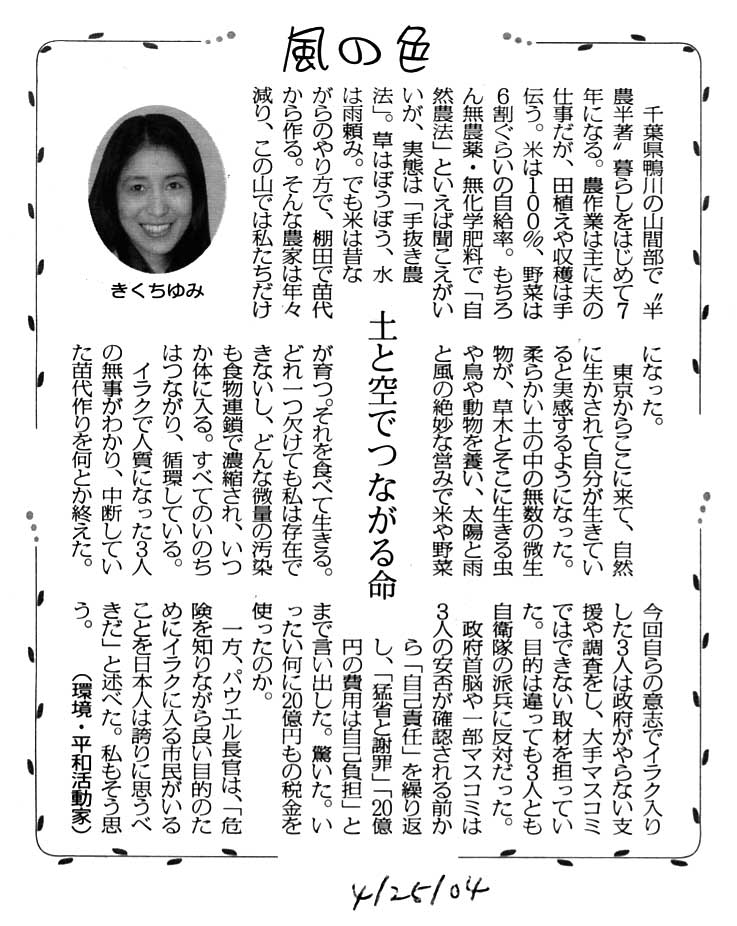 風の色
きくちゆみ
土と空でつながる命
千葉県鴨川の山間部で〝半
農半著〟暮らしをはじめて7
年になる。農作業は主に夫の
仕事だが、田植えや収穫は手
伝う。米は100％、野菜は
6割ぐらいの自給率。もちろ
ん無農薬・無化学肥料で「自
然農法」といえば聞こえがい
いが、実態は「手抜き農
法」。草はぼうぼう、水
は雨頼み。でも米は昔な
がらのやり方で、棚田で苗代
から作る。そんな農家は年々
減り、この山では私たちだけ
になった。
東京からここに来て、自然
に生かされて自分が生きてい
ると実感するようになった。
柔らかい土の中の無数の微生
物が、草木とそこに生きる虫
や鳥や動物を養い、太陽と雨
と風の絶妙な営みで米や野菜
が育つ。それを食べて生きる。
どれ一つ欠けても私は存在で
きないし、どんな微量の汚染
も食物連鎖で濃縮され、いつ
か体に入る。すべてのいのち
はつながり、循環している。
イラクで人質になった3人
の無事がわかり、中断してい
た苗代作りを何とか終えた。
今回自らの意志でイラク入り
した3人は政府がやらない支
援や調査をし、大手マスコミ
ではできない取材を担ってい
た。目的は違っても3人とも
自衛隊の派兵に反対だった。
政府首脳や一部マスコミは
3人の安否が確認される前か
ら「自己責任」を繰り返
し、「猛省と謝罪」「20億
円の費用は自己負担」と
まで言い出した。驚いた。い
ったい何に20億円もの税金を
使ったのか。
一方、パウエル長官は、「危
険を知りながら良い目的のた
めにイラクに入る市民がいる
ことを日本人は誇りに思うべ
きだ」と述べた。私もそう思
う。　（環境・平和活動家）
4/25/04